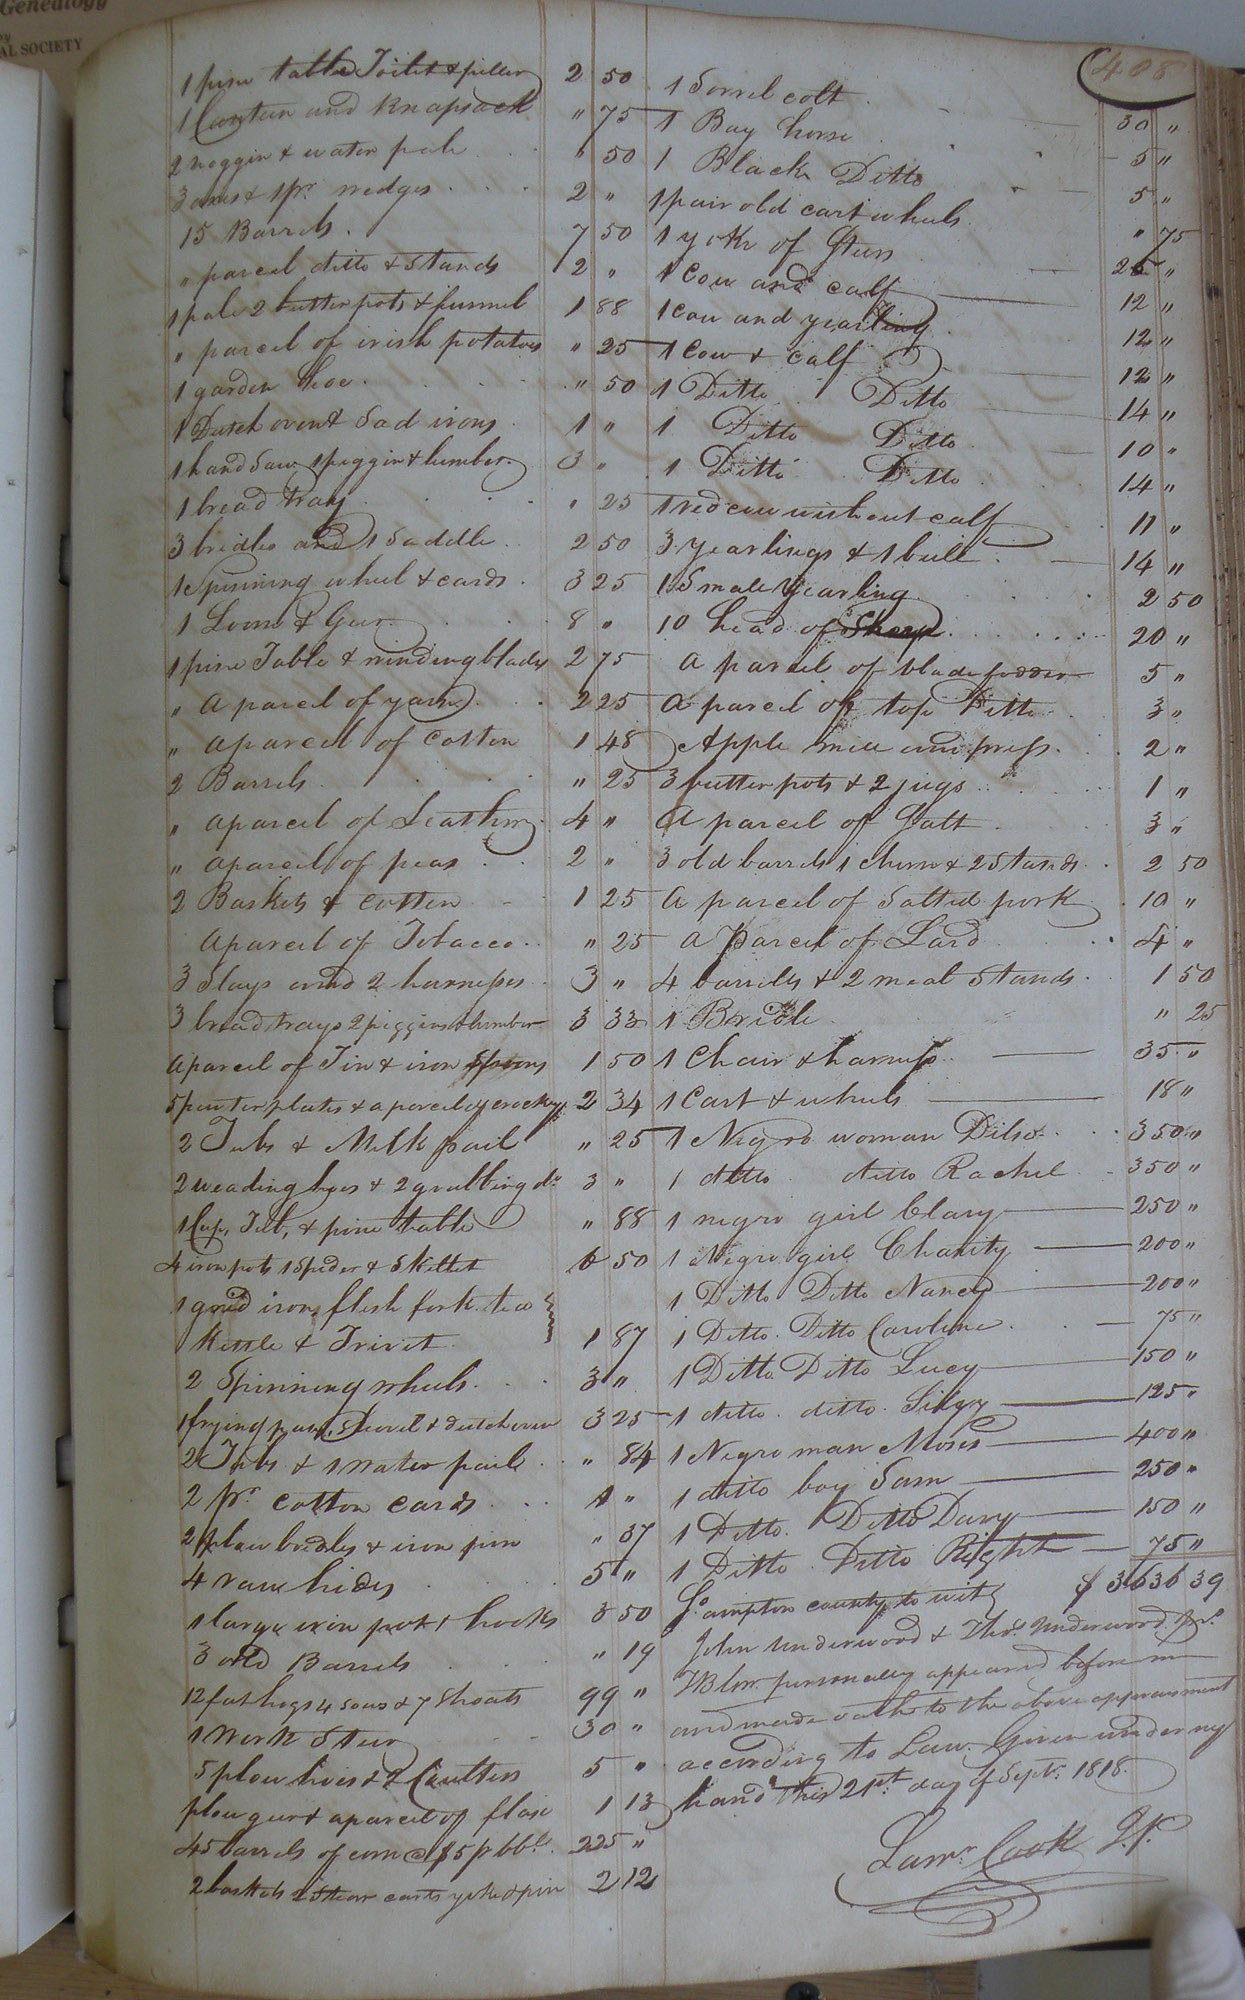 Genealogy
AL SOCIETY
408
1 pine table Toilet & piller 2 50
1 Canteen and Knapsack " 75
2 noggin & water pale " 50
3 axes & 1 pr. wedges 2 "
15 Barrels 7 50
" parcel ditto & Stands 2 "
1 pale 2 butter pots & funnel 1 88
" parcel of irish potatoes " 25
1 garden hoe " 50
1 Dutch oven & Sad irons 1 "
1 hand Saw, 1 piggin & lumber 3 "
1 bread tray " 25
3 bridles and 1 Saddle 2 50
1 Spinning wheel & cards 3 25
1 Loom & Geer 8 "
1 pine Table & winding blades 2 75
" A parcel of yarn 2 25
" A parcel of Cotton 1 48
2 Barrels " 25
" A parcel of Leather 4 "
" A parcel of peas 2 "
2 Baskets & cotton 1 25
A parcel of Tobacco " 25
3 Slays and 2 harnesses 3 "
3 bread trays 2 piggins & lumber 3 33
A parcel of Tin & iron Spoons 1 50
5 pewter plates & a parcel of crockery 2 34
2 Tubs & Milk pail " 25
2 weading hoes & 2 grubbing do. 3 "
1 Cup, Tub, & pine table " 88
4 iron pots 1 Spider & Skillet 6 50
1 grid iron, flesh fork tea
Kettle & Trivet 1 87
2 Spinning wheels 3 "
1 frying pan, Shovel & dutch oven 3 25
2 Tubs & 1 Water paile " 84
2 pr. cotton cards 1 "
2 plow bridles & iron pin " 37
4 raw hides 5 "
1 large iron pot & hooks 3 50
3 old Barrels " 19
12 fat hogs 4 sows & 7 Shoats 99 "
1 Work Steer 30 "
5 plow hoes & 2 Coulters 5 "
plow geer & a parcel of flax 1 13
45 barrels of corn @ $5 p bbl. 225 "
2 baskets 2 Steer carts yoke & pin 2 12
1 Sorrel colt 30 "
1 Bay horse 5 "
1 Black Ditto 5 "
1 pair old cart wheels " 75
1 yoke of Steers 25 "
1 Cow and calf 12 "
1 cow and yearling 12 "
1 Cow & calf 12 "
1 Ditto Ditto 14 "
1 Ditto Ditto 10 "
1 Ditto Ditto 14 "
1 red cow without calf 11 "
3 yearlings & 1 bull 14 "
1 Small yearling 2 50
10 head of Sheep 20 "
A parcel of blade fodder 5 "
A parcel of top Ditto 3 "
Apple mill and press 2 "
3 butter pots & 2 jugs 1 "
A parcel of Salt 3 "
3 old barrels 1 churn & 2 Stands 2 50
A parcel of Salted pork 10 "
A Parcel of Lard 4 "
4 barrels & 2 meal Stands 1 50
1 Bridle " 25
1 Chair & harness 35 "
1 Cart & wheels 18 "
1 Negro woman Dilsey 350 "
1 ditto ditto Rachel 350 "
1 negro girl Clary 250 "
1 Negro girl Charity 200 "
1 Ditto Ditto Nancy 200 "
1 Ditto Ditto Caroline 75 "
1 Ditto Ditto Lucy 150 "
1 ditto ditto Silvy 125 "
1 Negro man Moses 400 "
1 ditto boy Sam 250 "
1 Ditto Ditto Davy 150 "
1 Ditto Ditto Right 75 "
$ 3636 39
So. ampton county to wit
John Underwood & Thos. Underwood
Blow personally appeared before me
and made oath to the above appraisment
according to Law. Given under my
hand this 21st. day of Septr. 1818.
Lawr. Cook J.P.